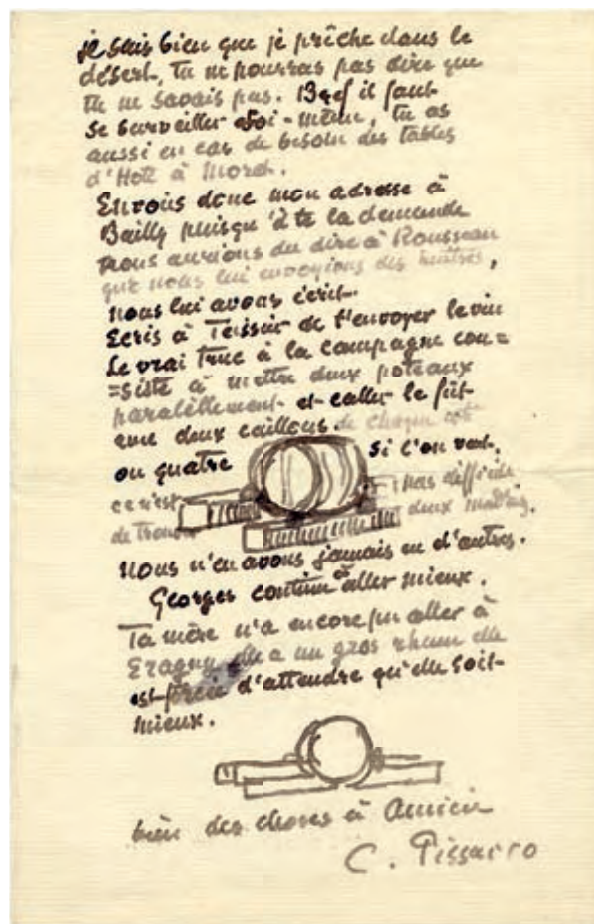 je sais bien que je prêche dans le
désert, tu ne pourras pas dire que
tu ne savais pas. Bref il faut
se surveiller soi-même, tu as
aussi en cas de besoin des tables
d'Hote à Moret.
Envois donc mon adresse à
Bailly puisqu'il te la demande
nous aurions du dire à Rousseau
que nous lui envoyions des huîtres,
nous lui avons écrit.
Ecris à Teissier de t'envoyer le vin
Le vrai truc à la campagne con=
=siste à mettre deux poteaux
paralèllement et caller le fût
avec deux cailloux de chaque coté
ou quatre si l'on veut.
ce n'est pas difficile
de trouver deux
Nous n'en avons jamais eu d'autres.
Georges continue à aller mieux.
Ta mère n'a encore pu aller à
Eragny elle a un gros rhume elle
est forcée d'attendre qu'elle soit
mieux.
bien des choses à
C. Pissarro